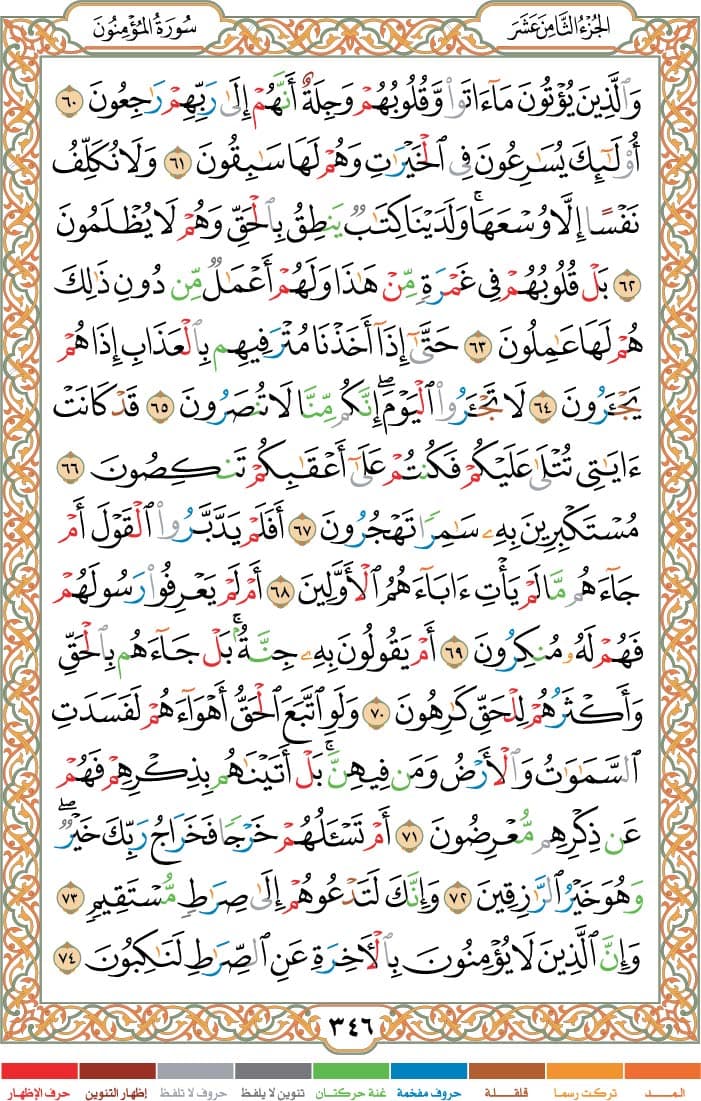 الجزء الثامن عشر
سورة المؤمنون
وَٱلَّذِينَ يُؤْتُونَ مَآ ءَاتَوا۟ وَّقُلُوبُهُمْ وَجِلَةٌ أَنَّهُمْ إِلَىٰ رَبِّهِمْ رَٰجِعُونَ ٦٠
أُو۟لَٰٓئِكَ يُسَٰرِعُونَ فِى ٱلْخَيْرَٰتِ وَهُمْ لَهَا سَٰبِقُونَ ٦١ وَلَا نُكَلِّفُ
نَفْسًا إِلَّا وُسْعَهَا ۚ وَلَدَيْنَا كِتَٰبٌ يَنطِقُ بِٱلْحَقِّ وَهُمْ لَا يُظْلَمُونَ
٦٢ بَلْ قُلُوبُهُمْ فِى غَمْرَةٍ مِّنْ هَٰذَا وَلَهُمْ أَعْمَٰلٌ مِّن دُونِ ذَٰلِكَ
هُمْ لَهَا عَٰمِلُونَ ٦٣ حَتَّىٰٓ إِذَآ أَخَذْنَا مُتْرَفِيهِم بِٱلْعَذَابِ إِذَا هُمْ
يَجْـَٔرُونَ ٦٤ لَا تَجْـَٔرُوا۟ ٱلْيَوْمَ ۖ إِنَّكُم مِّنَّا لَا تُنصَرُونَ ٦٥ قَدْ كَانَتْ
ءَايَٰتِى تُتْلَىٰ عَلَيْكُمْ فَكُنتُمْ عَلَىٰٓ أَعْقَٰبِكُمْ تَنكِصُونَ ٦٦
مُسْتَكْبِرِينَ بِهِۦ سَٰمِرًا تَهْجُرُونَ ٦٧ أَفَلَمْ يَدَّبَّرُوا۟ ٱلْقَوْلَ أَمْ
جَآءَهُم مَّا لَمْ يَأْتِ ءَابَآءَهُمُ ٱلْأَوَّلِينَ ٦٨ أَمْ لَمْ يَعْرِفُوا۟ رَسُولَهُمْ
فَهُمْ لَهُۥ مُنكِرُونَ ٦٩ أَمْ يَقُولُونَ بِهِۦ جِنَّةٌۢ ۚ بَلْ جَآءَهُم بِٱلْحَقِّ
وَأَكْثَرُهُمْ لِلْحَقِّ كَٰرِهُونَ ٧٠ وَلَوِ ٱتَّبَعَ ٱلْحَقُّ أَهْوَآءَهُمْ لَفَسَدَتِ
ٱلسَّمَٰوَٰتُ وَٱلْأَرْضُ وَمَن فِيهِنَّ ۚ بَلْ أَتَيْنَٰهُم بِذِكْرِهِمْ فَهُمْ
عَن ذِكْرِهِم مُّعْرِضُونَ ٧١ أَمْ تَسْـَٔلُهُمْ خَرْجًا فَخَرَاجُ رَبِّكَ خَيْرٌ ۖ
وَهُوَ خَيْرُ ٱلرَّٰزِقِينَ ٧٢ وَإِنَّكَ لَتَدْعُوهُمْ إِلَىٰ صِرَٰطٍ مُّسْتَقِيمٍ ٧٣
وَإِنَّ ٱلَّذِينَ لَا يُؤْمِنُونَ بِٱلْـَٔاخِرَةِ عَنِ ٱلصِّرَٰطِ لَنَٰكِبُونَ ٧٤
٣٤٦
المـــد
تركت رسما
قلقـلة
حروف مفخمة
غنة حركتـان
تنوين لا يلفظ
حروف لا تلفظ
إظهار التنوين
حرف الإظهار